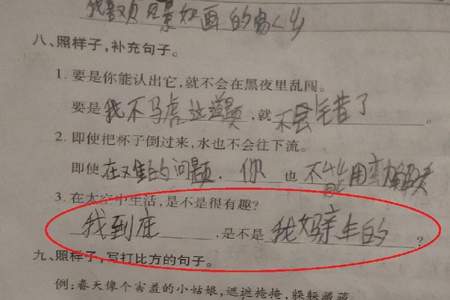 我喜欢风景如画的家乡
八、照样子，补充句子。
1. 要是你能认出它，就不会在黑夜里乱闯。
要是我不马虎这道题，就不会写错了。
2. 即使把杯子倒过来，水也不会往下流。
即使在难的问题，你也不能用来
3. 在太空中生活，是不是很有趣？
我到底，是不是我妈亲生的？
九、照样子，写打比方的句子。
例：春天像个害羞的小姑娘，遮遮掩掩，躲躲藏藏